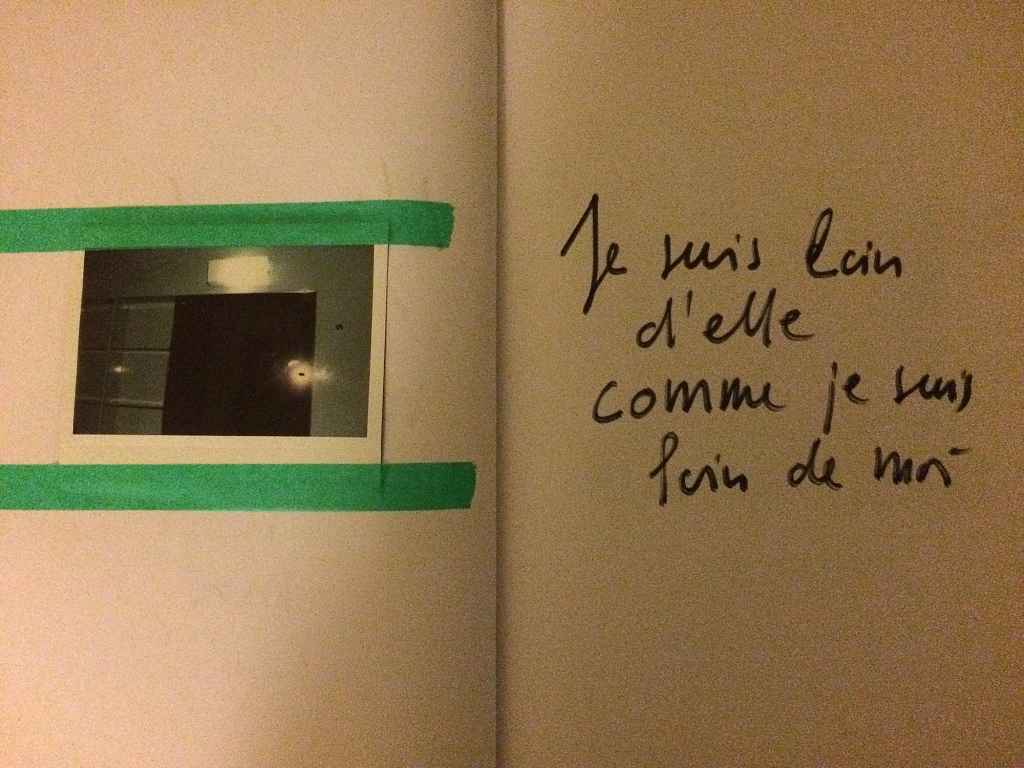 Je suis loin
d'elle
comme je suis
loin de moi